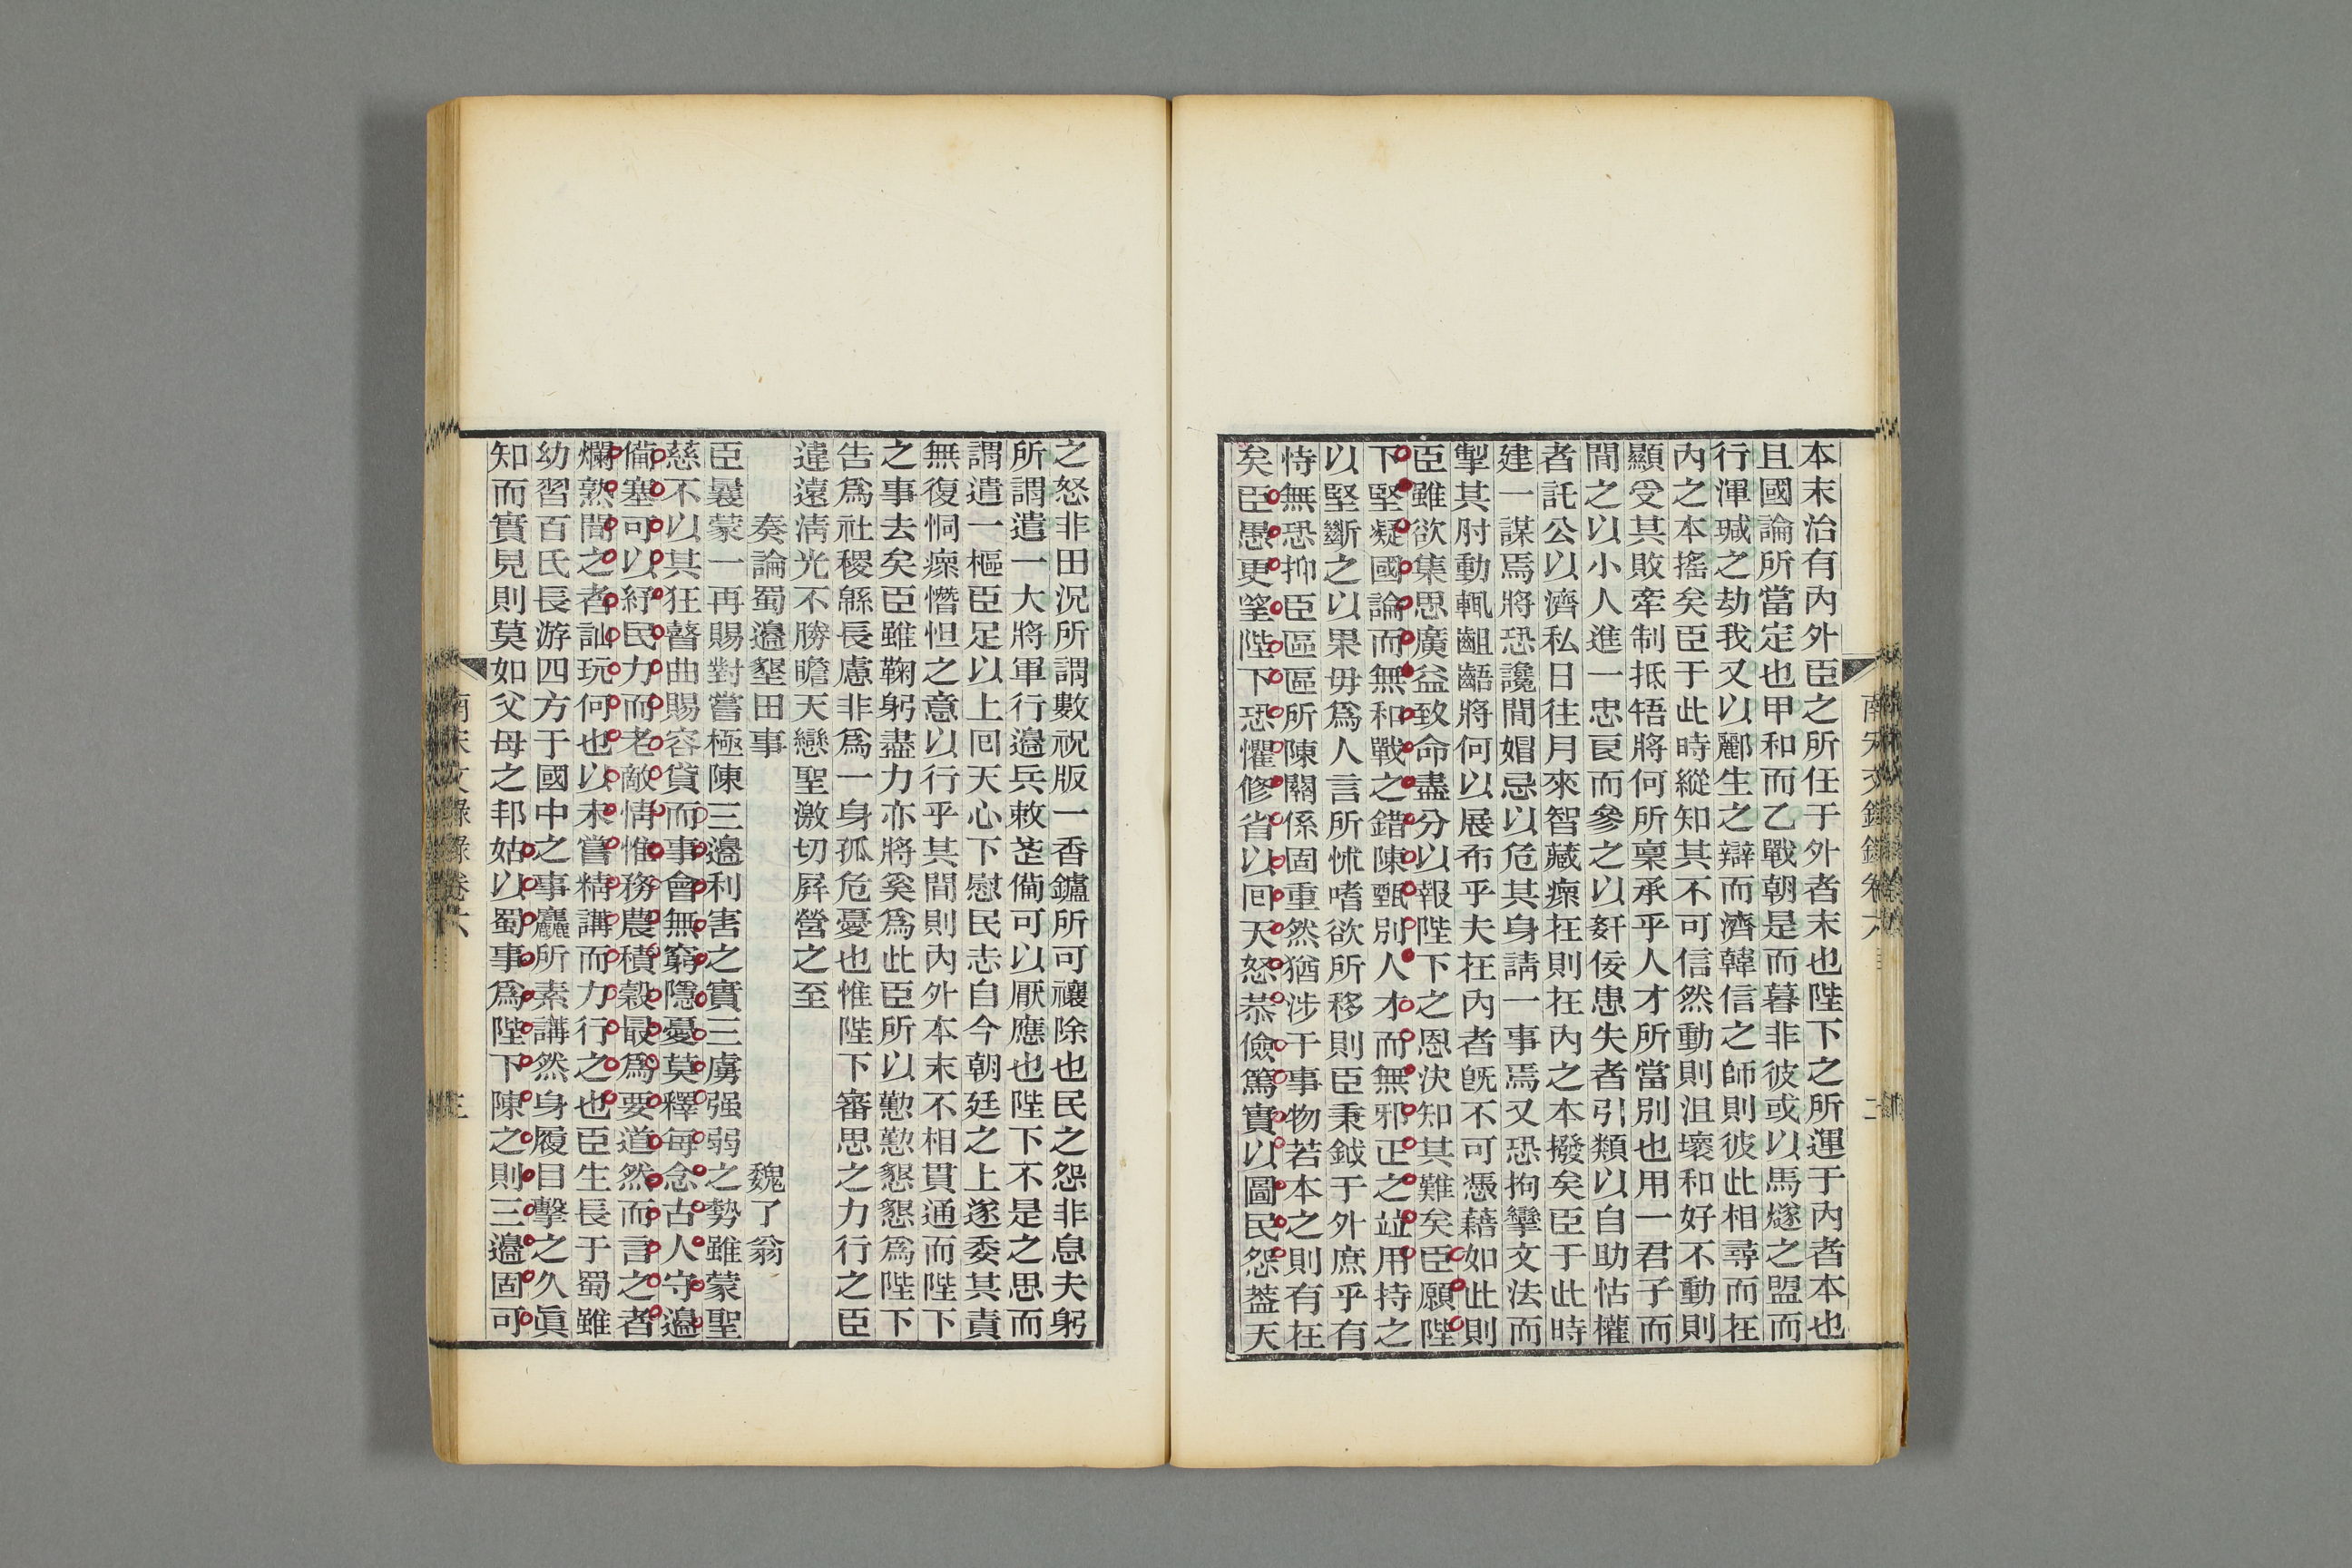 本末治有內外臣之所任于外者末也陛下之所運于內者本也
且國論所當定也甲和而乙戰朝是而暮非彼或以馬燧之盟而
行渾瑊之劫我又以酈生之辯而濟韓信之師則彼此相尋而在
內之本搖矣臣于此時縱知其不可信然動則沮壞和好不動則
顯受其敗牽制抵牾將何所稟承乎人才所當別也用一君子而
間之以小人進一忠良而參之以姦佞患失者引類以自助怙權
者託公以濟私日往月來智藏瘝在則在內之本撥矣臣于此時
建一謀焉將恐讒間娼忌以危其身請一事焉又恐拘攣文法而
掣其肘動輒齟齬將何以展布乎夫在內者旣不可憑藉如此則
臣雖欲集思廣益致命盡分以報陛下之恩決知其難矣臣願陛
下堅凝國論而無和戰之錯陳甄別人才而無邪正之竝用持之
以堅斷之以果毋爲人言所怵嗜欲所移則臣秉鉞于外庶乎有
恃無恐抑臣區區所陳關係固重然猶涉于事物若本之則有在
矣臣愚更望陛下恐懼修省以囘天怒恭儉篤實以圖民怨蓋天
南宋文錄錄卷六
二
之怒非田況所謂數祝版一香鑪所可禳除也民之怨非息夫躬
所謂遣一大將軍行邊兵敕莅僃可以厭應也陛下不是之思而
謂遣一樞臣足以上囘天心下慰民志自今朝廷之上遂委其責
無復恫瘝憯怛之意以行乎其間則內外本末不相貫通而陛下
之事去矣臣雖鞠躬盡力亦將奚爲此臣所以懃懃懇懇爲陛下
告爲社稷緜長慮非爲一身孤危憂也惟陛下審思之力行之臣
違遠淸光不勝瞻天戀聖激切屛營之至
奏論蜀邊墾田事 魏了翁
臣曩蒙一再賜對嘗極陳三邊利害之實三虜强弱之勢雖蒙聖
慈不以其狂瞽曲賜容貸而事會無窮隱憂莫釋每念古人守邊
僃塞可以紓民力而老敵情惟務農積穀最爲要道然而言之者
爛熟聞之者訕玩何也以未嘗精講而力行之也臣生長于蜀雖
幼習百氏長游四方于國中之事麤所素講然身履目擊之久眞
知而實見則莫如父母之邦姑以蜀事爲陛下陳之則三邊固可
南宋文錄錄卷六
三